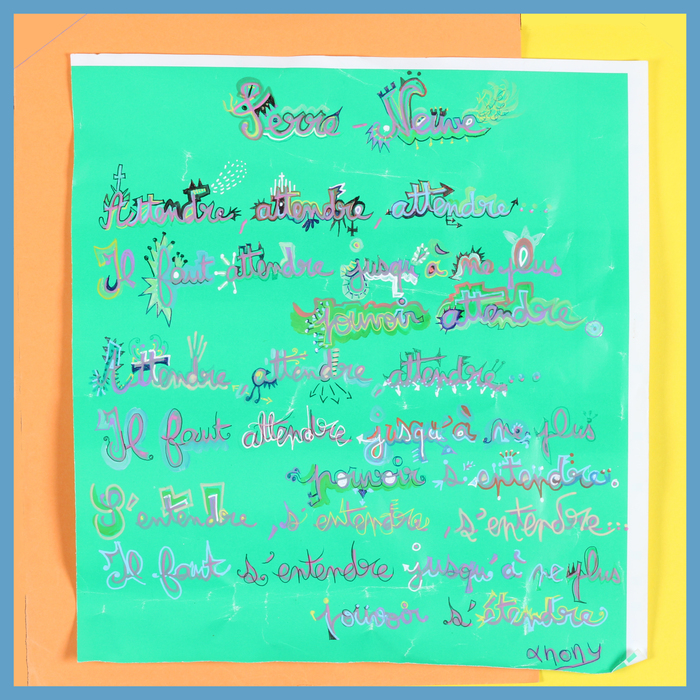 Terre-Neuve
Attendre, attendre, attendre...
Il faut attendre jusqu'à ne plus
pouvoir attendre.
Attendre, attendre, attendre...
Il faut attendre jusqu'à ne plus
pouvoir s'entendre.
S'entendre, s'entendre, s'entendre...
Il faut s'entendre jusqu'à ne plus
pouvoir s'étendre
anony